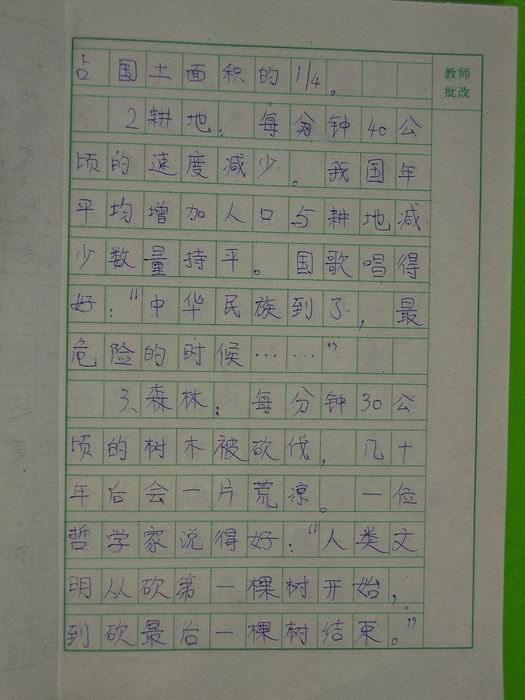 教师
批改
占国土面积的1/4。
2耕地：每分钟40公
顷的速度减少。我国年
平均增加人口与耕地减
少数量持平。国歌唱得
好：“中华民族到了，最
危险的时候……”
3、森林：每分钟30公
顷的树木被砍伐，几十
年后会一片荒凉。一位
哲学家说得好：“人类文
明从砍第一棵树开始，
到砍最后一棵树结束。”